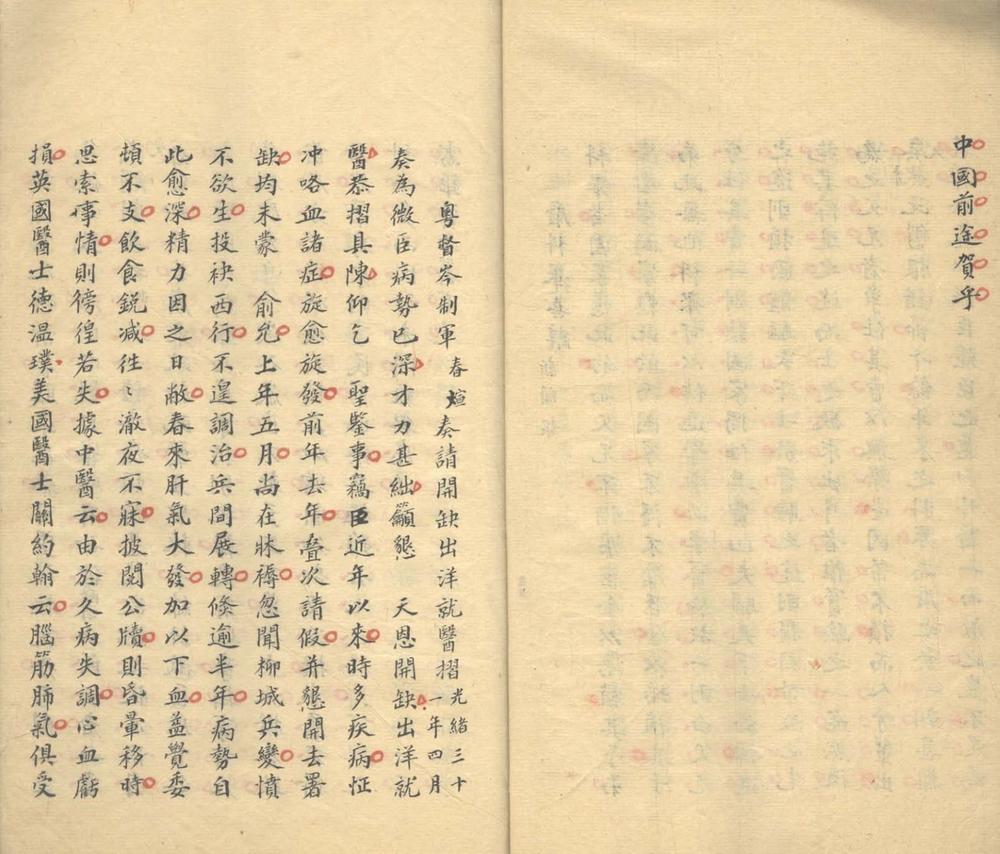 中國前途賀乎
粵督岑制軍春煊奏請開缺出洋就醫摺光緒三十年四月
奏為微臣病勢已深才力甚絀籲懇 天恩開缺出洋就
醫恭摺具陳仰乞 聖鑒事竊臣近年以來時多疾病怔
冲咯血諸症旋愈旋發前年去年叠次請假并懇開去署
缺均未蒙 俞允上年五月尚在牀褥忽聞柳城兵變憤
不欲生投袂西行不遑調治兵間展轉倏逾半年病勢自
此愈深精力因之日敝春來肝氣大發加以下血益覺委
頓不支飲食銳减徃〻澈夜不寐披閱公牘則昏暈移時
思索事情則徬徨若失據中醫云由於久病失調心血虧
損英國醫士德温璞美國醫士關約翰云腦筋肺氣俱受